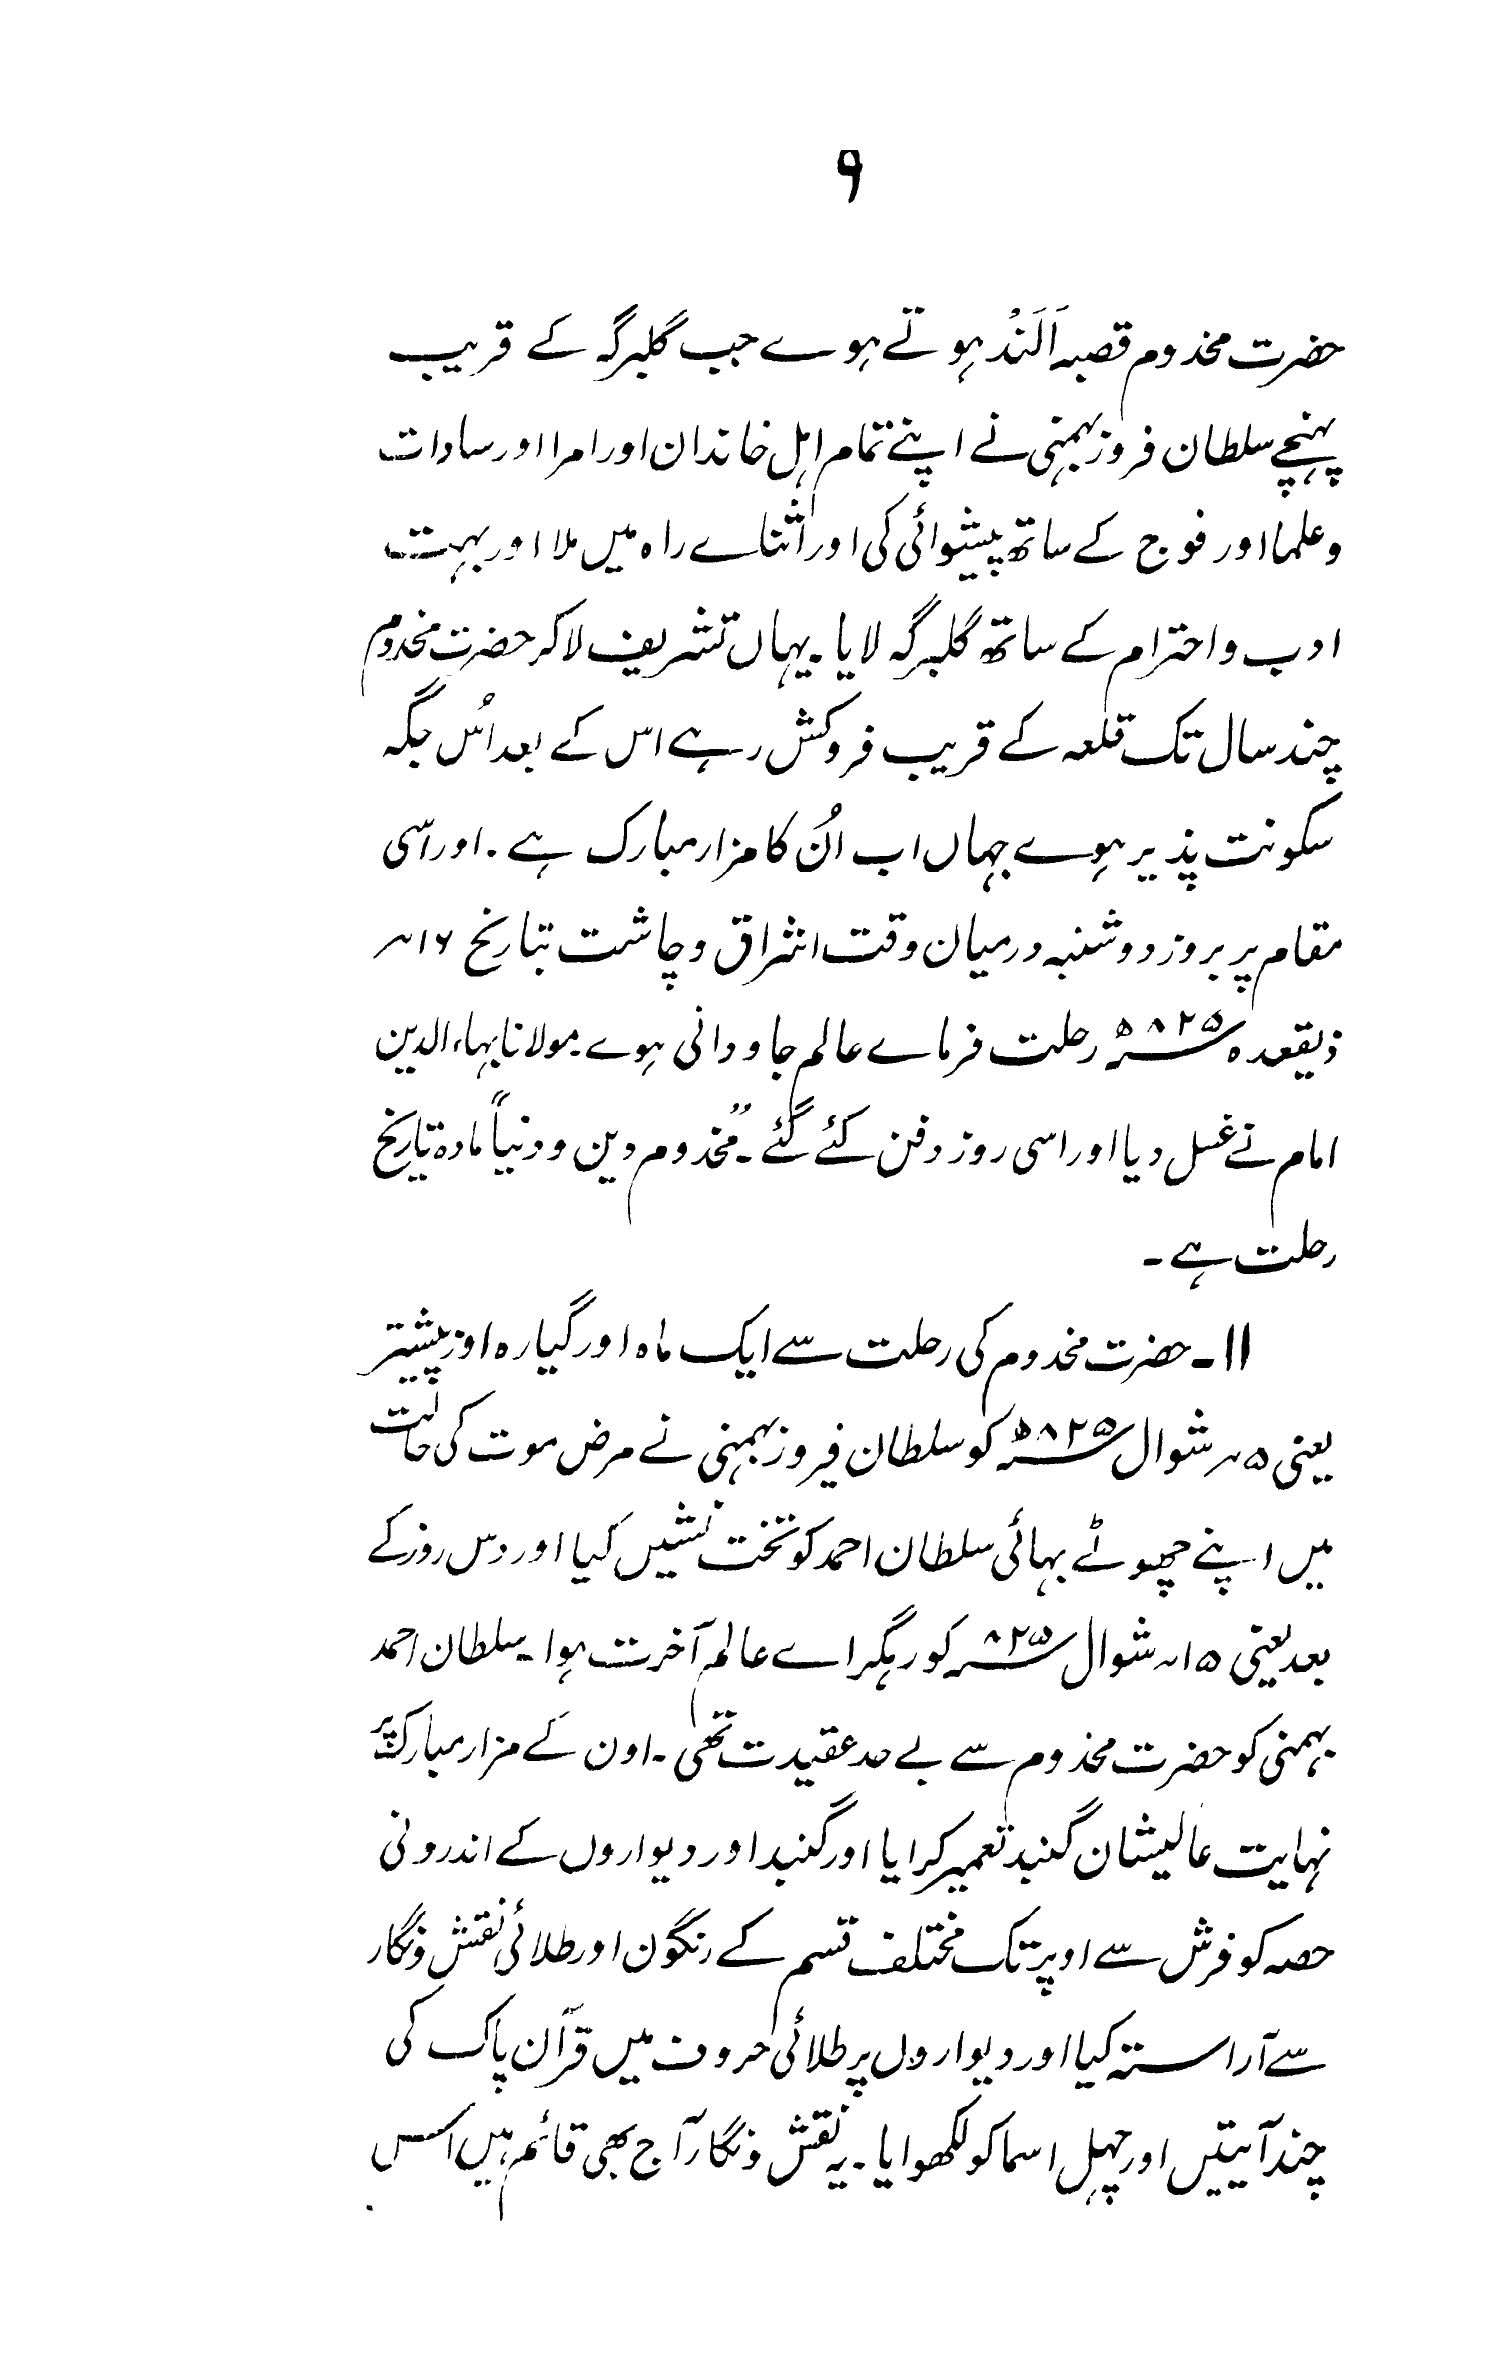 ۹
حضرت مخدوم قصبہ اَلَنْد ہوتے ہوے جب گلبرگہ کے قریب
پہنچے سلطان فروز بہمنی نے اپنے تمام اہل خاندان اور امرا اور سادات
و علما اور فوج کے ساتھ پیشوائی کی اور اثناے راہ میں ملا اور بہت
ادب و احترام کے ساتھ گلبرگہ لایا۔ یہاں تشریف لاکر حضرت مخدوم
چند سال تک قلعہ کے قریب فروکش رہے اس کے بعد اُس جگہ
سکونت پذیر ہوے جہاں اب اُن کا مزار مبارک ہے۔ اور اسی
مقام پر بروز دوشنبہ درمیان وقت اشراق و چاشت بتاریخ ۱۶؍
ذیقعدہ ۸۲۵ھ رحلت فرماے عالم جاودانی ہوے۔ مولانا بہاء الدین
امام نے غسل دیا اور اسی روز دفن کئے گئے۔ ”مخدوم دین و دنیا“ مادہ تاریخ
رحلت ہے۔
۱۱۔ حضرت مخدوم کی رحلت سے ایک ماہ اور گیارہ اوز پیشتر
یعنی ۵؍ شوال ۸۲۵ھ کو سلطان فیروز بہمنی نے مرض موت کی حالت
میں اپنے چھوٹے بہائی سلطان احمد کو تخت نشیں کیا اور دس روز کے
بعد یعنی ۱۵؍ شوال ۸۲۵ کو رہگراے عالم آخرت ہوا۔ سلطان احمد
بہمنی کو حضرت مخدوم سے بے حد عقیدت تھی۔ اون کے مزار مبارک پر
نہایت عالیشان گنبد تعمیر کرایا اور گنبد اور دیواروں کے اندرونی
حصہ کو فرش سے اوپر تک مختلف قسم کے رنگون اور طلائی نقش و نگار
سے آراستہ کیا اور دیواروں پر طلائی حروف میں قرآن پاک کی
چند آیتیں اور چہل اسما کو لکھوایا۔ یہ نقش و نگار آج بھی قائم ہیں اس